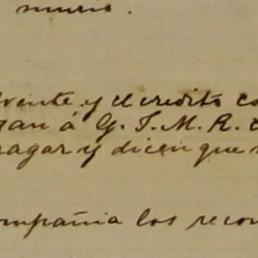 murio.
vente y el credito co
gan á G. I. M. R. 
pagar y dicen que
ompañia los recon